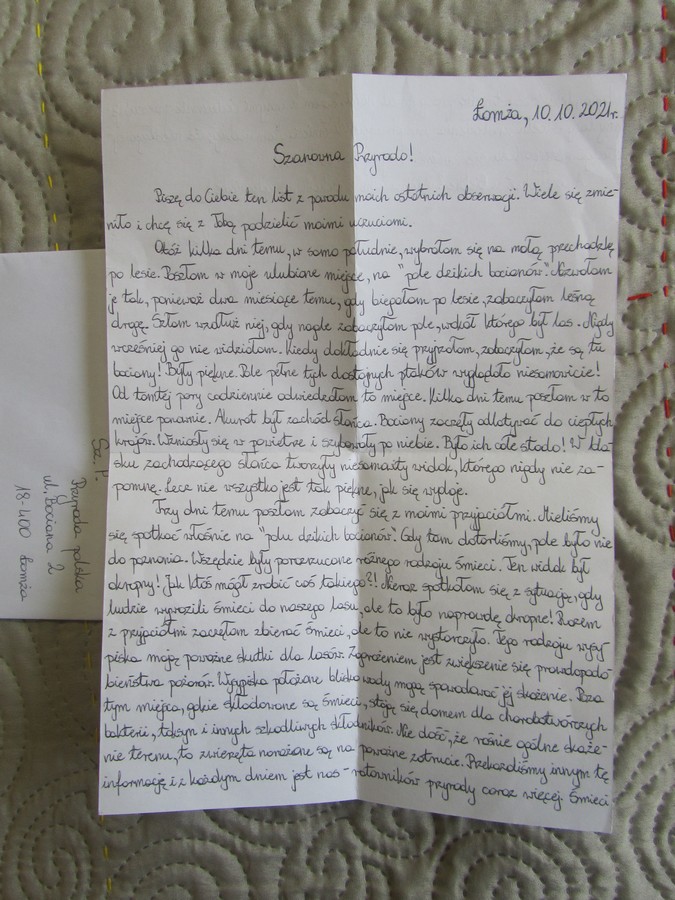 Łomża, 10.10.2021r.
Szanowna Przyrodo!
Piszę do Ciebie ten list z powodu moich ostatnich obserwacji. Wiele się zmie-
niło i chcę się z Tobą podzielić moimi uczuciami.
Otóż kilka dni temu, w samo południe, wybrałam się na małą przechadzkę
po lesie. Poszłam w moje ulubione miejsce, na "pole dzikich bocianów". Nazwałam
je tak, ponieważ dwa miesiące temu, gdy biegałam po lesie, zobaczyłam leśną
drogę. Szłam wzdłuż niej, gdy nagle zobaczyłam pole, wokół którego był las. Nigdy
wcześniej go nie widziałam. Kiedy dokładnie się przyjrzałam, zobaczyłam, że są tu
bociany! Były piękne. Pole pełne tych dostojnych ptaków wyglądało niesamowicie!
Od tamtej pory codziennie odwiedzałam to miejsce. Kilka dni temu poszłam w to
miejsce ponownie. Akurat był zachód słońca. Bociany zaczęły odlatywać do ciepłych
krajów. Wzniosły się w powietrze i szybowały po niebie. Było ich całe stado! W bla-
sku zachodzącego słońca tworzyły niesamowity widok, którego nigdy nie za-
pomnę. Lecz nie wszystko jest tak piękne, jak się wydaje.
Trzy dni temu poszłam zobaczyć się z moimi przyjaciółmi. Mieliśmy
się spotkać właśnie na "polu dzikich bocianów". Gdy tam dotarliśmy, pole było nie
do poznania. Wszędzie były porozrzucane różnego rodzaju śmieci. Ten widok był
okropny! Jak ktoś mógł zrobić coś takiego?! Nieraz spotkałam się z sytuacją, gdy
ludzie wyrzucili śmieci do naszego lasu, ale to było naprawdę okropne! Razem
z przyjaciółmi zaczęłam zbierać śmieci, ale to nie wystarczyło. Tego rodzaju wysy
piska mają poważne skutki dla lasów. Zagrożeniem jest zwiększenie się prawdopodo-
bieństwa pożarów. Wysypiska położone blisko wody mogą spowodować jej skażenie. Poza
tym miejsca, gdzie składowane są śmieci, stają się domem dla chorobotwórczych
bakterii, toksyn i innych szkodliwych składników. Nie dość, że rośnie ogólne skaże-
nie terenu, to zwierzęta narażone są na poważne zatrucie. Przekazaliśmy innym tę
informację i z każdym dniem jest nas - ratowników przyrody coraz więcej. Śmieci
Sz. P.
Przyroda polska
ul. Bociana 2
18-400 Łomża